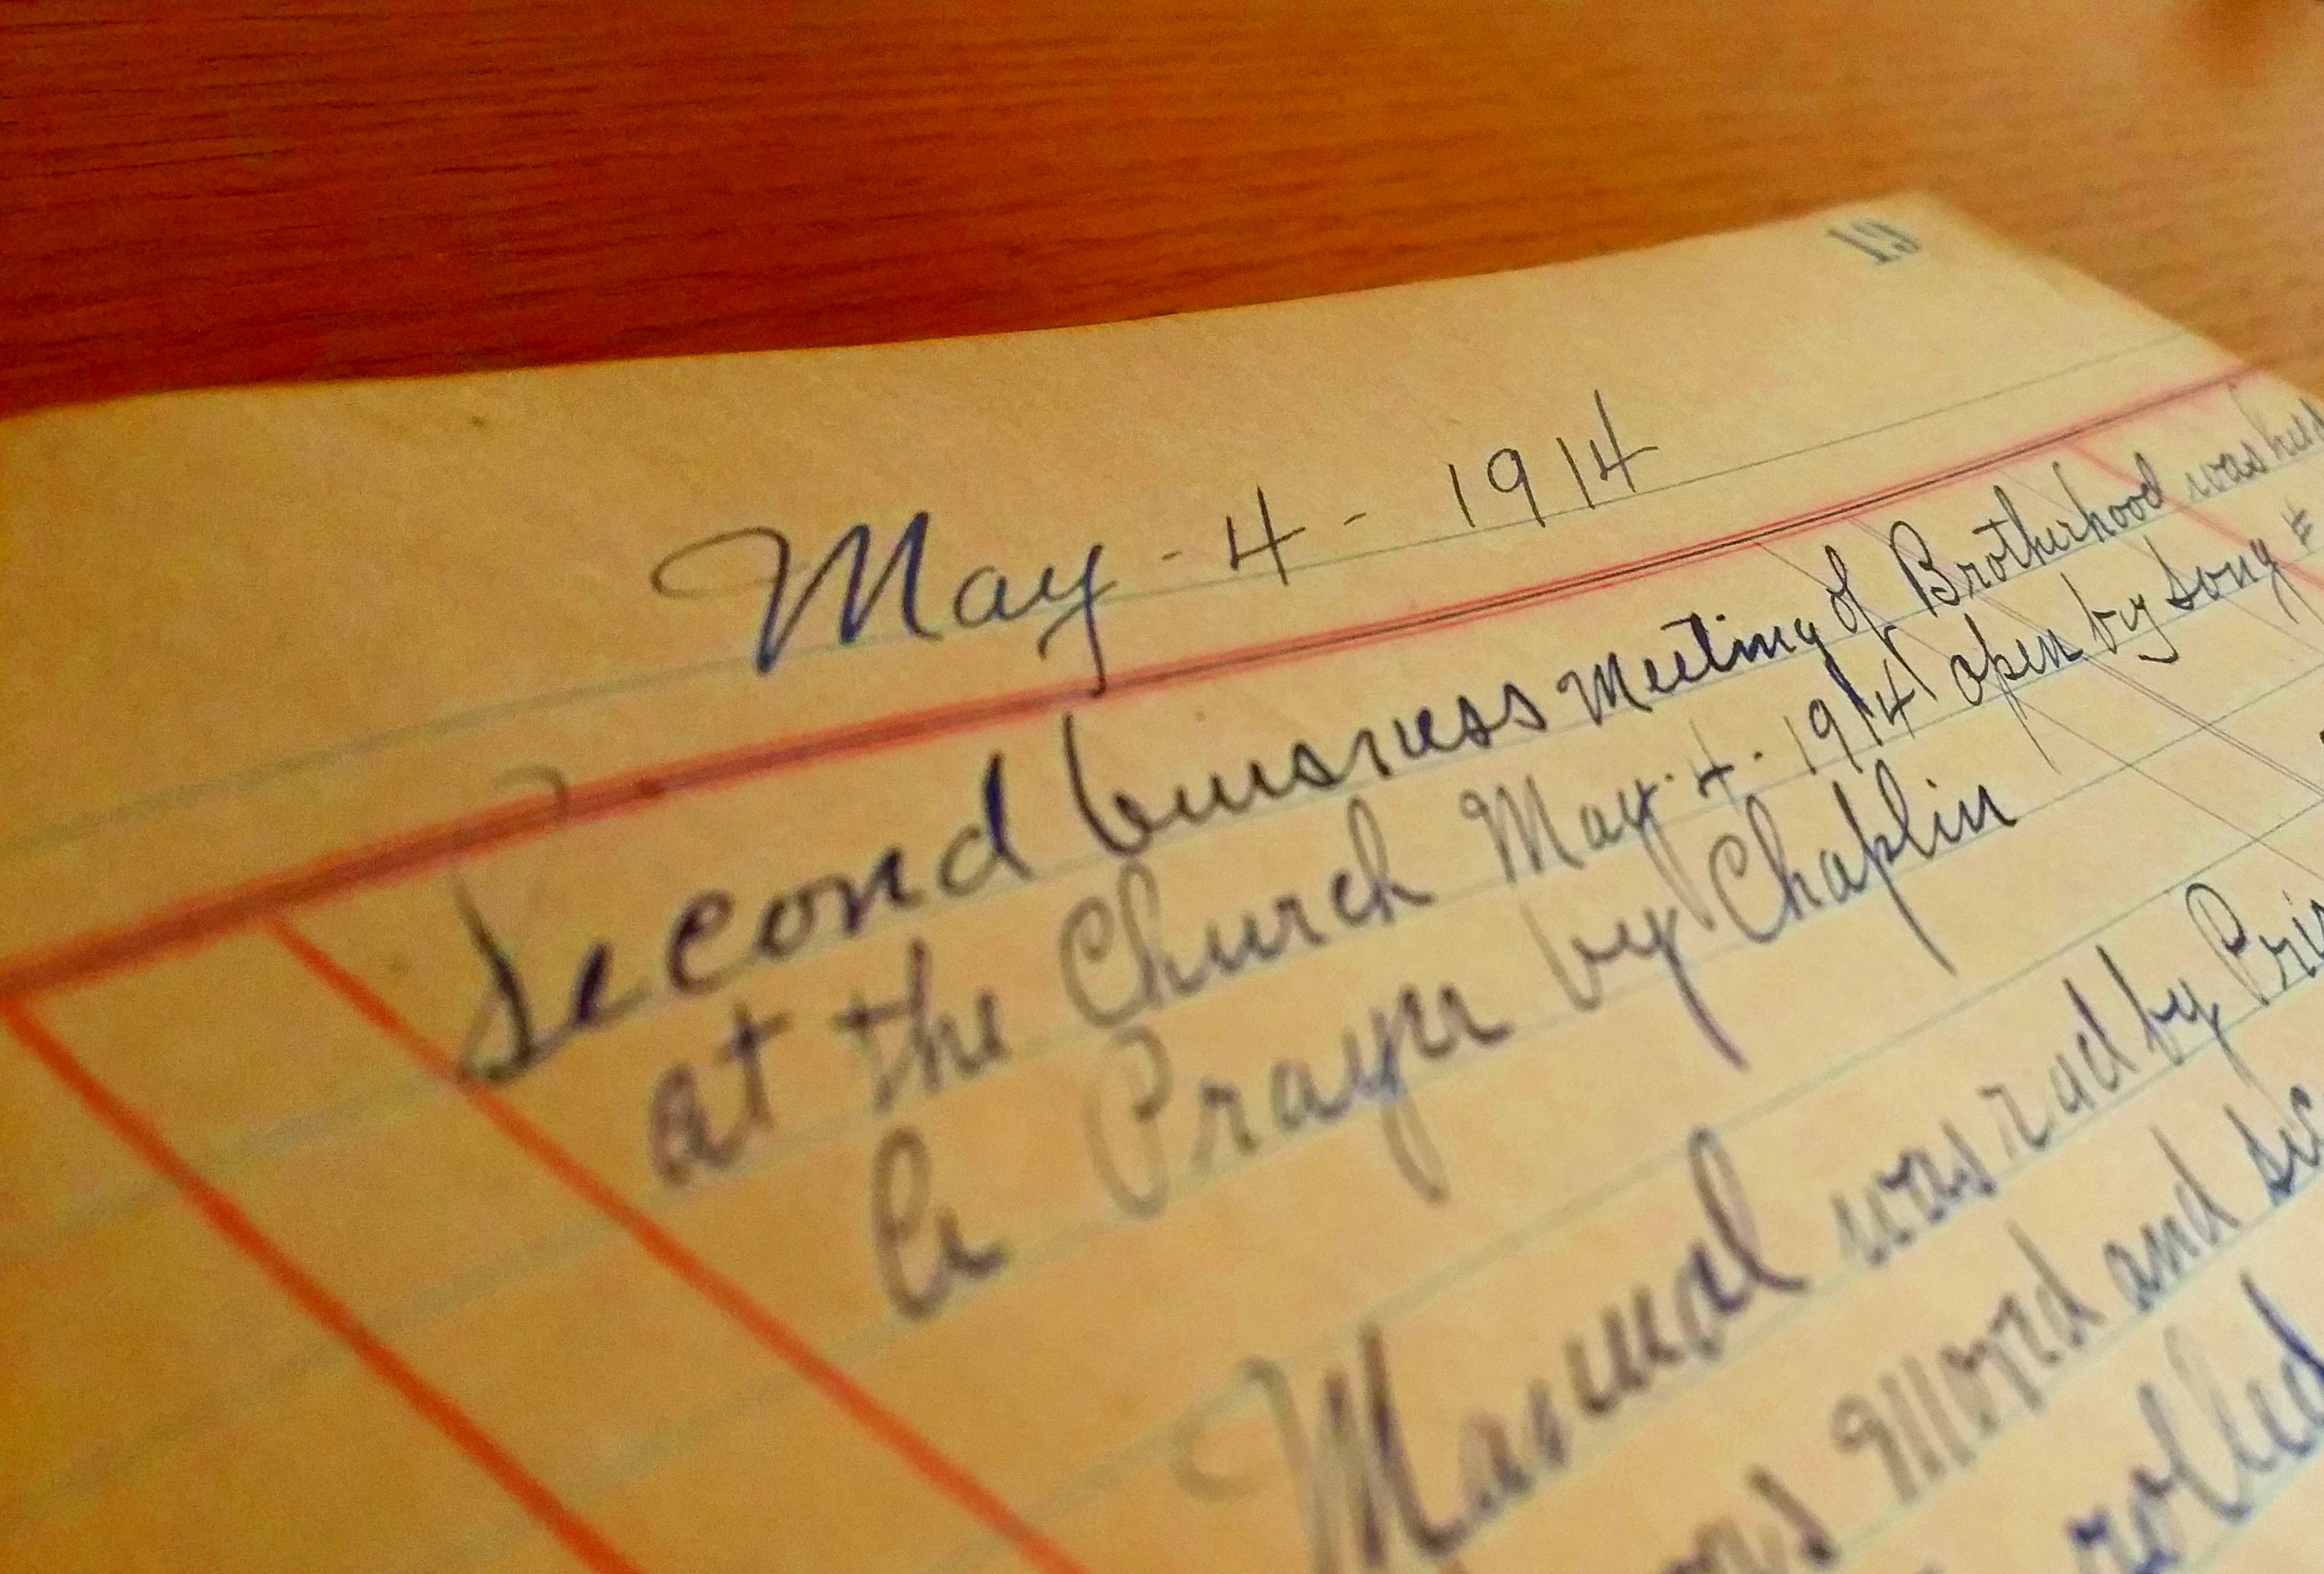 13
May - 4 - 1914
Second buisness Meeting of Brotherhood was held
at the Church May. 4. 1914 open by Song #
A Prayer by Chaplin
Manual was read by
Word and
rolled